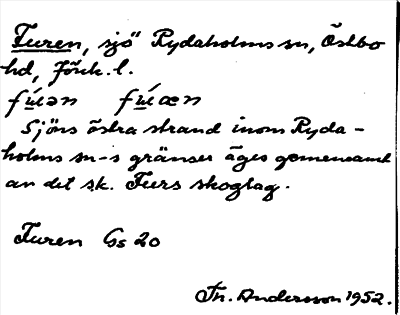 Furen, sjö Rydaholms sn, Östbo
hd, Jönk. l.
Sjöns östra strand inom Ryda-
holms sn-s gränser äges gemensamt
av det s.k. Furs skoglag.
Furen Gs 20
Th. Andersson 1952.